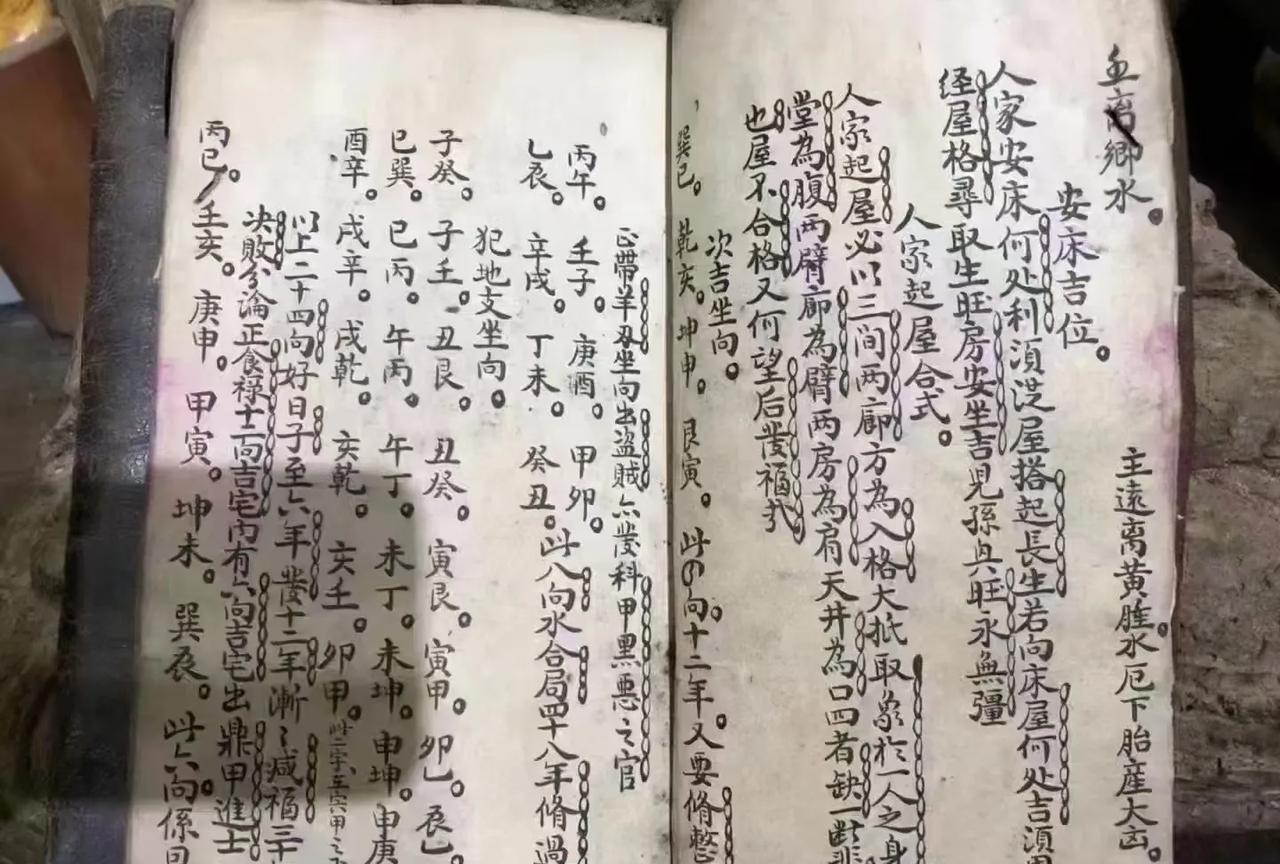 壬离鄉水。 主遠离黄腫水厄下胎產大凶。
安床吉位。
人家安床何处利須
屋搭起長生若向床屋何处吉須
经屋格尋取生旺房安坐吉見孫兵旺永無彊
人家起屋合式。
人家起屋必以三间两廊方為入格大抵取象於一人之身
堂為腹两臂廊為臂两房為肩天井為口四者缺一
也屋不合格又何望后發福
次吉坐向。
巽巳。乾亥。坤申。艮寅。此の向十二年。又要脩整
正帶羊刃坐向出盗賊六發科甲黑悪之官
丙午。壬子。庚酉。甲卯。
乙辰。辛戌。丁未。癸丑。此八向水合局四十八年脩過
犯地支坐向。
子癸。子壬。丑艮。丑癸。寅艮。寅甲。卯乙。辰
巳巽。巳丙。午丙。午丁。未丁。未坤。申坤。申庚
酉辛。戌辛。戌乾。亥乾。亥壬。卯甲。
以上二十四向好日子至六年發十二年漸〻减福三十
决敗分論正食禄士一向吉宅内有六向吉宅出鼎甲進士
丙巳。壬亥。庚申。甲寅。坤未。巽辰。此六向係